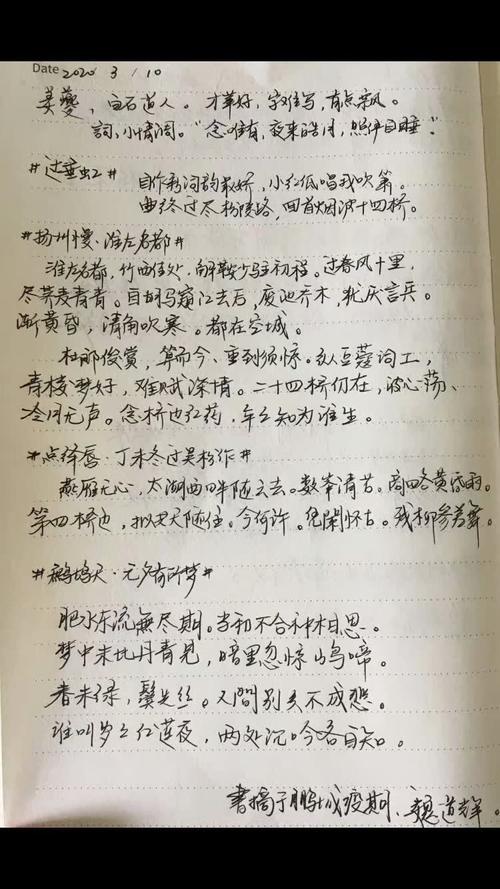 Date 2020 3 / 10
姜夔，白石道人。才华好，字佳写，有点飘。
词，小情调。“念唯有，夜来皓月，照伊自睡”
#过垂虹#
自作新词韵最娇，小红低唱我吹箫。
曲终过尽松陵路，回首烟波十四桥。
#扬州慢·淮左名都#
淮左名都，竹西佳处，解鞍少驻初程。过春风十里，
尽荠麦青青。自胡马窥江去后，废池乔木，犹厌言兵。
渐黄昏，清角吹寒。都在空城。
杜郎俊赏，算而今、重到须惊。纵豆蔻词工，
青楼梦好，难赋深情。二十四桥仍在，波心荡、
冷月无声。念桥边红药，年年知为谁生。
#点绛唇·丁未冬过吴松作#
燕雁无心，太湖西畔随云去。数峰清苦。商略黄昏雨。
第四桥边，拟共天随住。今何许。凭阑怀古。残柳参差舞。
#鹧鸪天·元夕有所梦#
肥水东流無尽期。当初不合种相思。
梦中未比丹青见，暗里忽惊山鸟啼。
春未绿，鬓先丝。人間别久不成悲。
谁叫岁岁红莲夜，两处沉吟各自知。
書摘于鹏城疫期、魏道辉。